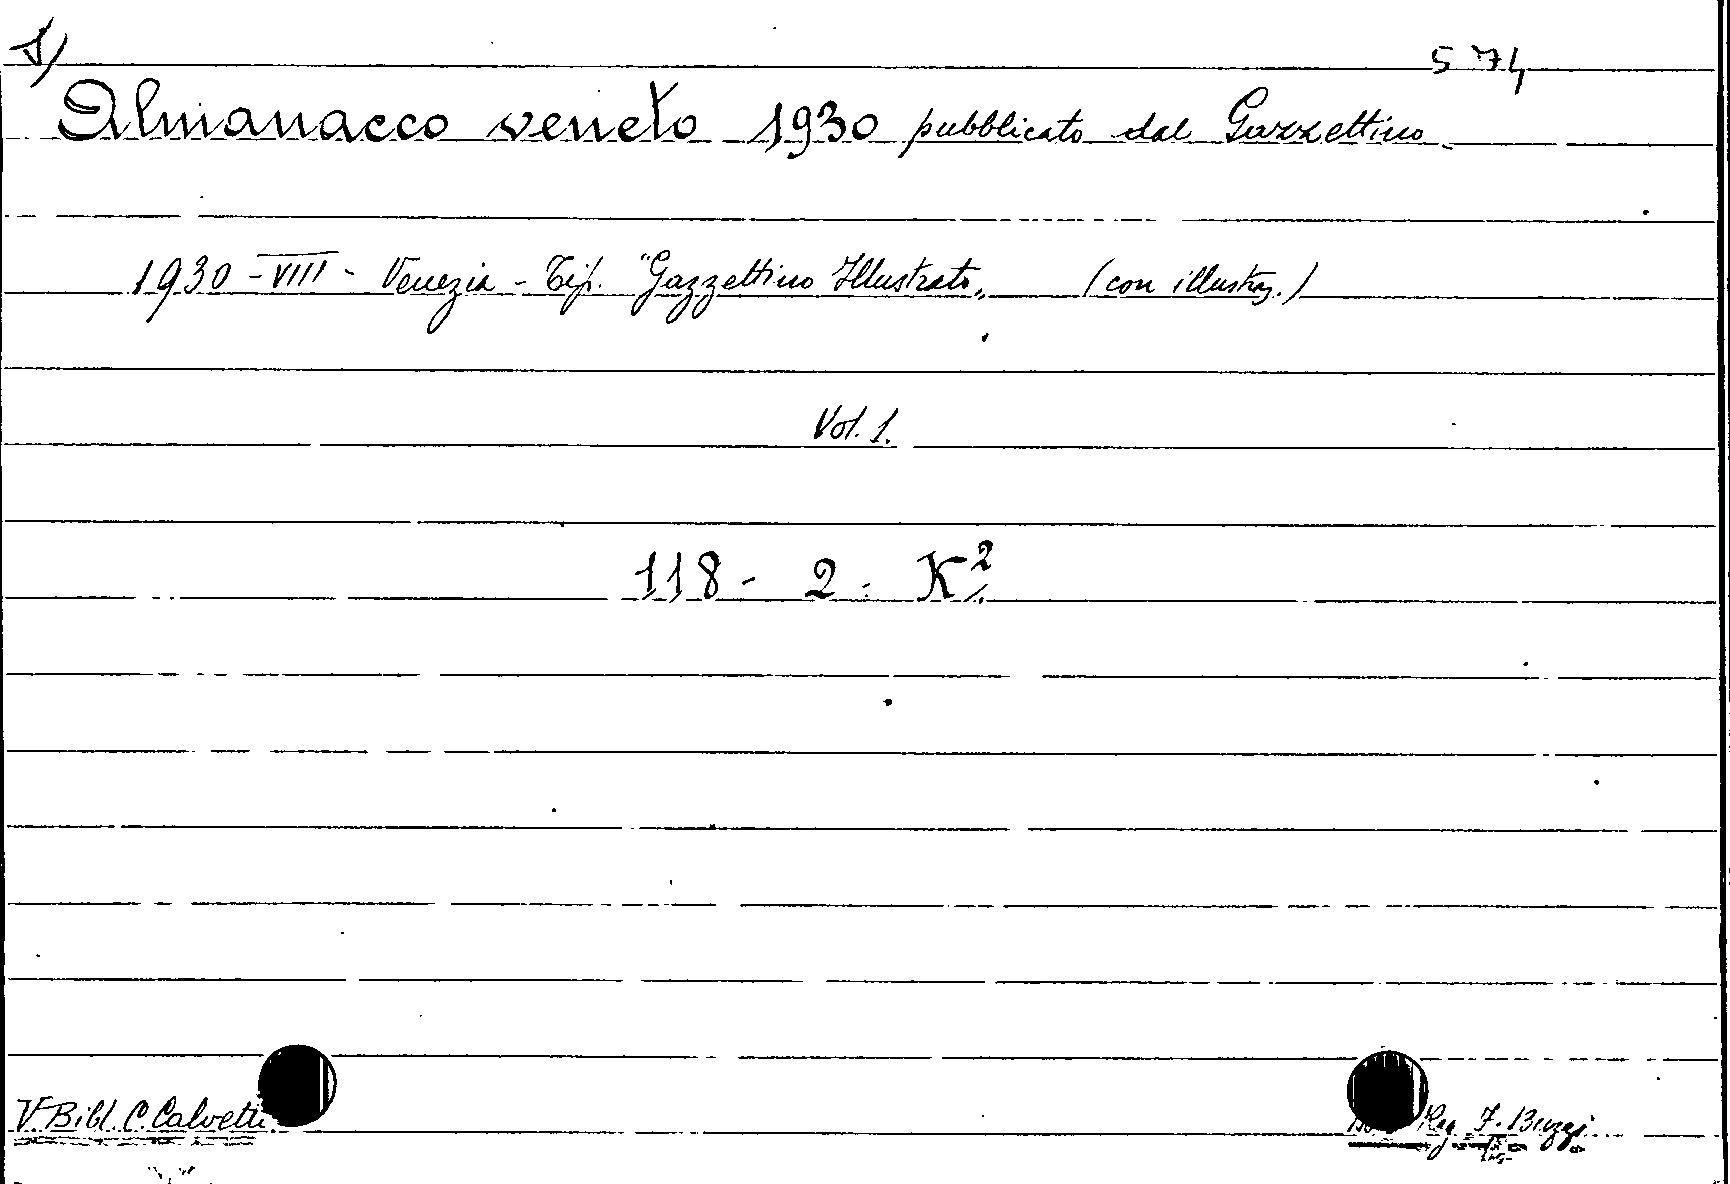 1) 574
Almanacco veneto 1930 pubblicato dal Gazzettino
1930 - VIII - Venezia - Tip. "Gazzettino Illustrato„ (con illustraz.)
Vol. 1.
118 - 2 - K².
V Bibl. C. Calvetti Rag. F. Buzzi